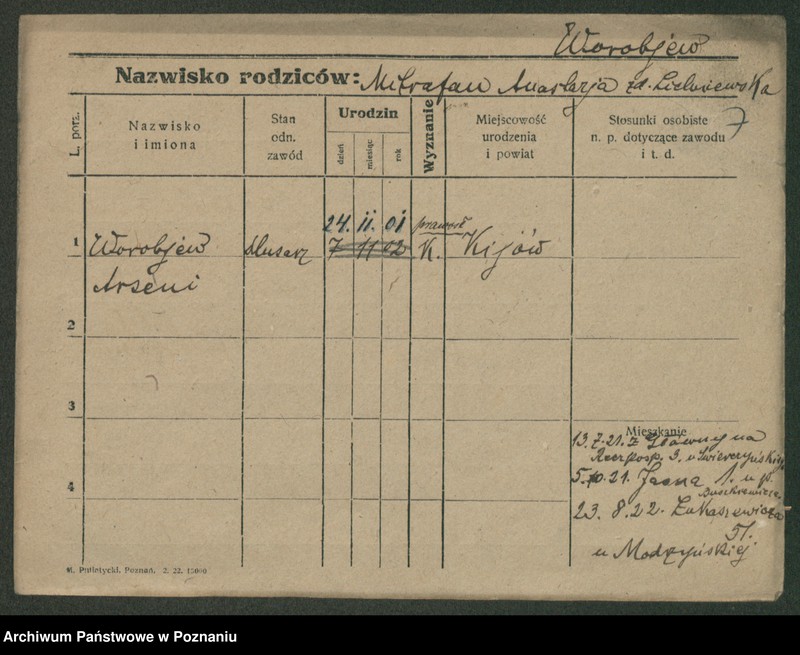 Worobjew
Nazwisko rodziców: Mitrafan Anastazja zd.
7
L. porz.
Nazwisko i imiona
Stan odn. zawód
Urodzin
dzień
miesiąc
rok
Wyznanie
Miejscowość urodzenia i powiat
Stosunki osobiste n. p. dotyczące zawodu i t. d.
24. ii. 01 prawosł.
1 Worobjew ślusarz 7 11 02 K. Kijów
Arseni
2
3
Mieszkanie
13.7.21. z Główny na
Rzeczposp. 3. u
4
5.10.21. Jasna 1. u p.
23. 8.22. Łukaszewicza
51.
u Modzyńskiej
M. Putiatycki, Poznań. 2. 22. 15000
Archiwum Państwowe w Poznaniu